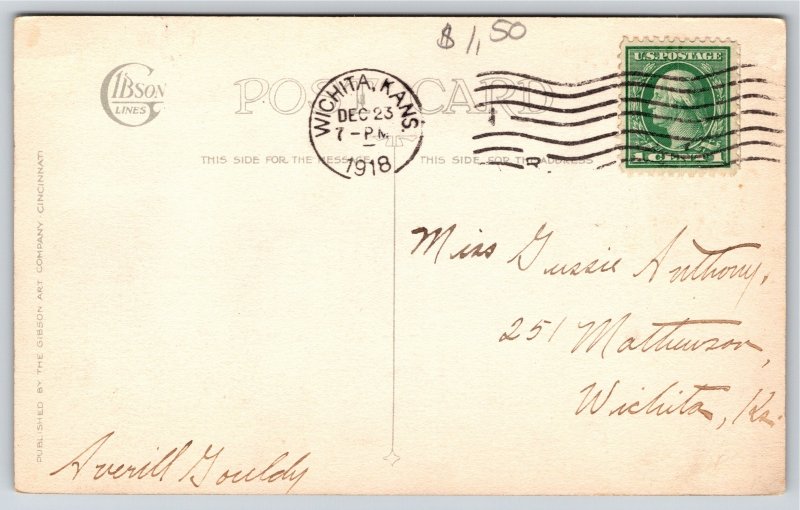 $1,50
GIBSON
LINES
POST CARD
WICHITA, KANS.
DEC 23
7 - P.M.
1918
U.S. POSTAGE
1 CENTS 1
THIS SIDE FOR THE MESSAGE
THIS SIDE FOR THE ADDRESS
PUBLISHED BY THE GIBSON ART COMPANY, CINCINNATI
Miss Gussie Anthony,
251 Mathewson,
Wichita, Ks.
Averill Gouldy